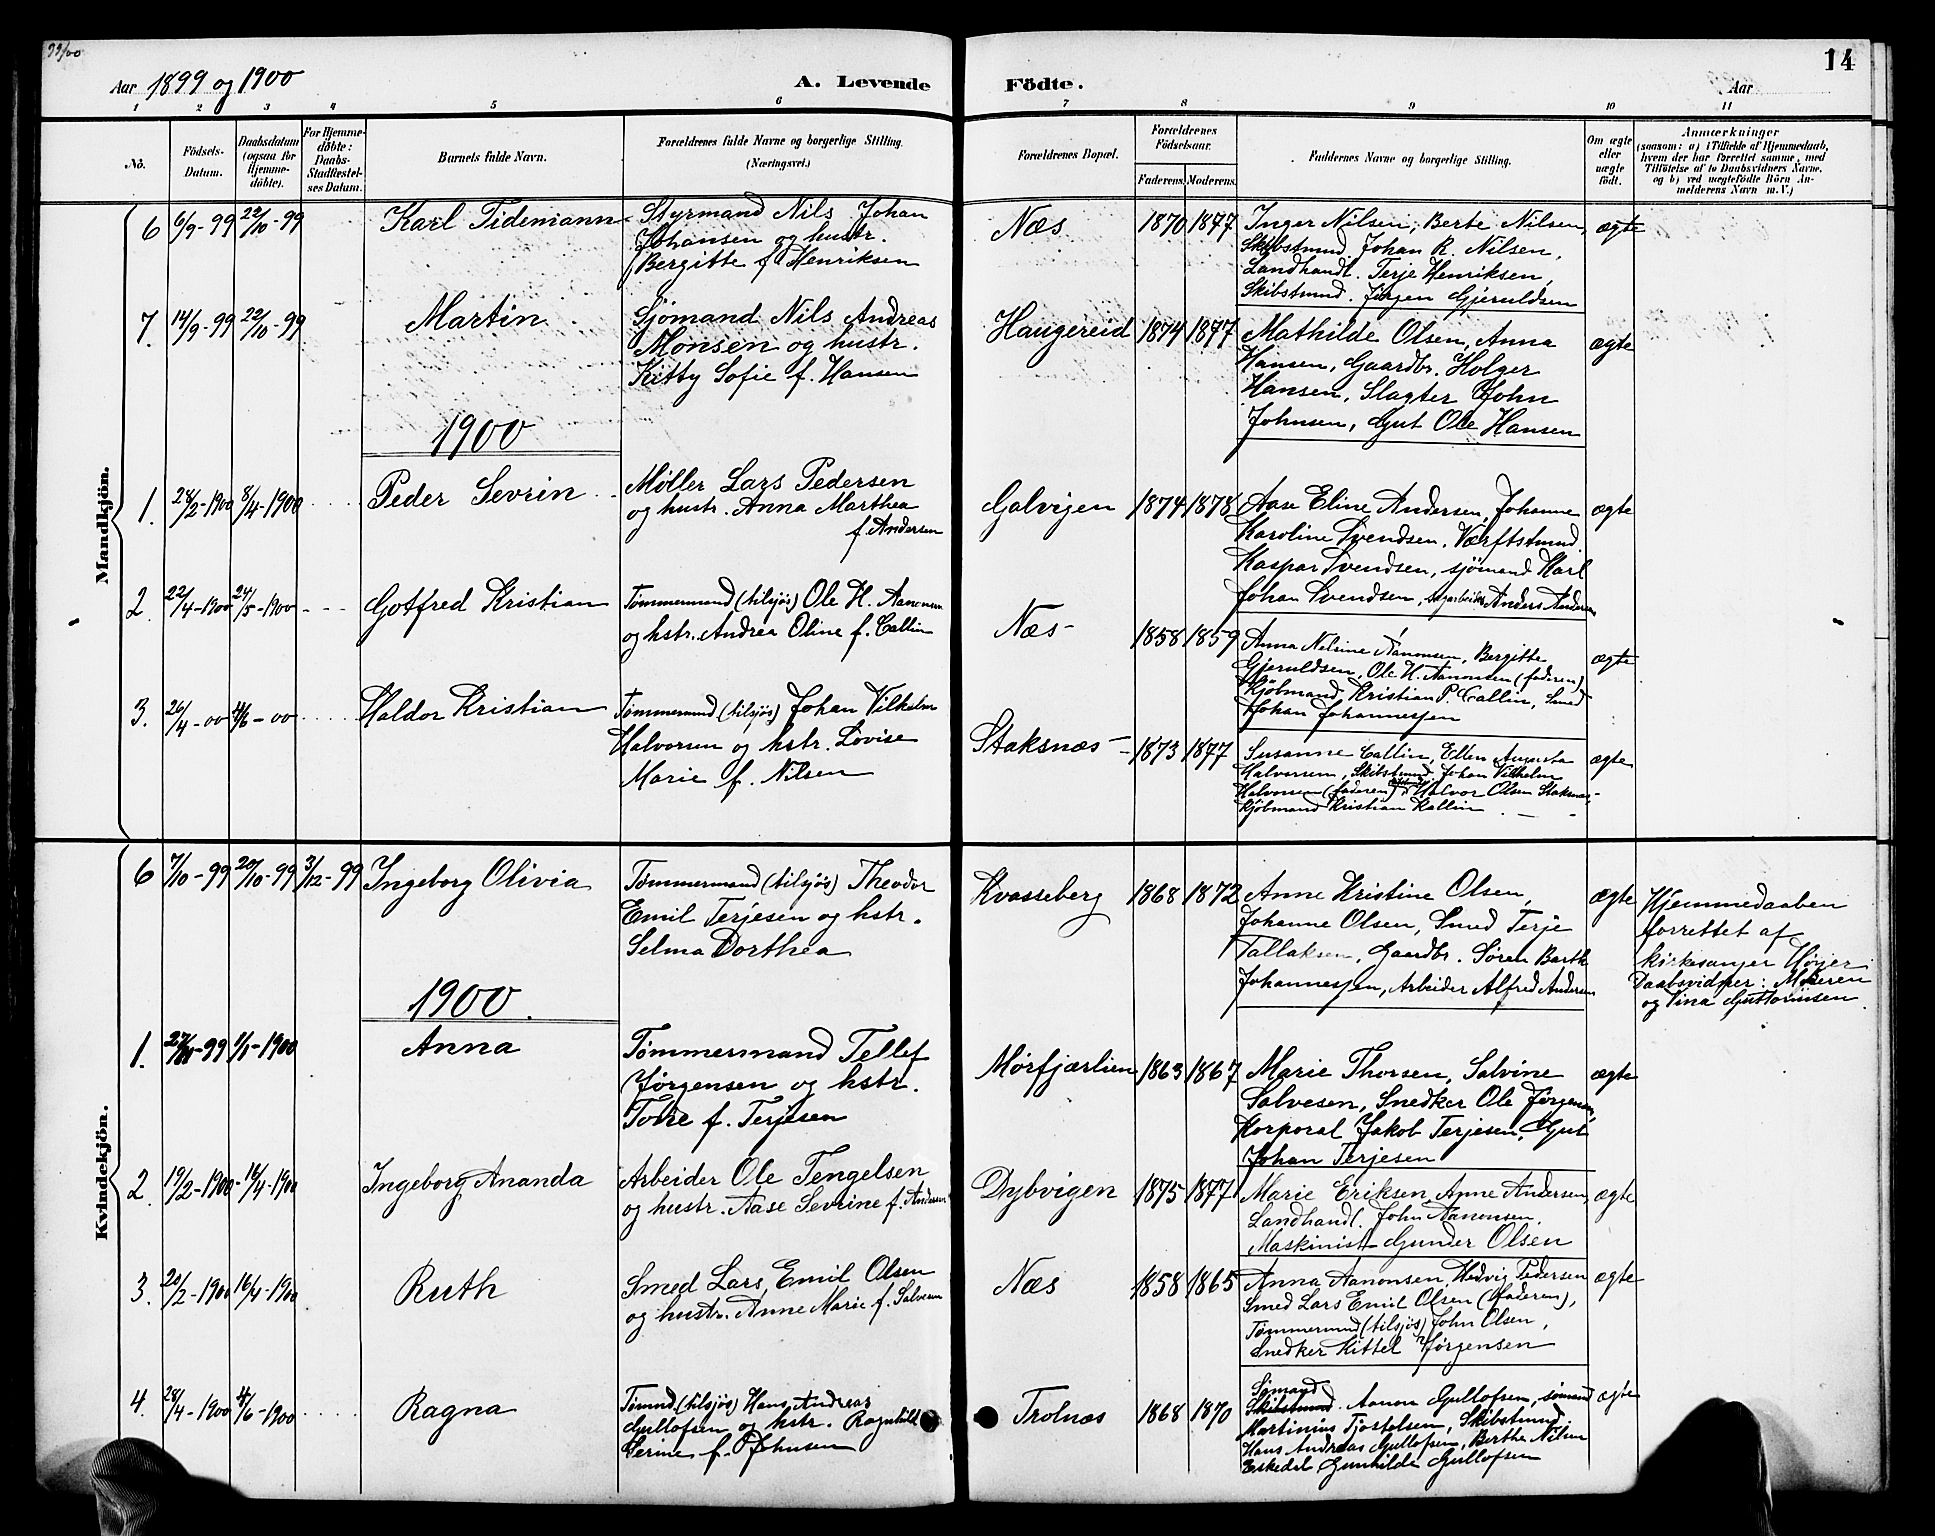 99/00
Aar 1899 og 1900
A. Levende Födte.
14
Aar
1 2 3 4 5 6 7 8 9 10 11
Nö.
Födsels-Datum.
Daabsdatum (ogsaa for Hjemme-döbte).
For Hjemme-döbte: Daabs-Stadfæstel-ses Datum.
Barnets fulde Navn.
Forældrenes fulde Navne og borgerlige Stilling. (Næringsvei.)
Forældrenes Bopæl.
Forældrenes Födselsaar.
Faderens. Moderens.
Faddernes Navne og borgerlige Stilling.
Om ægte eller uægte födt.
Anmærkninger
(saasom: a) i Tilfælde af Hjemmedaab,
hvem der har forrettet samme, med
Tilföielse af to Daabsvidners Navne.
og b) ved uægtefödte Börn An-
melderens Navn m. V.)
Mandkjön.
6 6/9-99 22/10-99 Karl Tidemann
Styrmand Nils Johan
Johansen og hustr.
Bergitte f. Henriksen
Næs 1870 1877
Inger Nilsen, Berte Nilsen,
Skibstmd. Johan R. Nilsen,
Landhandl. Terje Henriksen,
Skibstmd. Jörgen Gjeruldsen
ægte
7. 14/9-99 22/10-99 Martin
Sjömand Nils Andreas
Monsen og hustr.
Kitty Sofie f. Hansen
Haugereid 1874 1877
Mathilde Olsen, Anna
Hansen, Gaardbr. Holger
Hansen, Slagter John
Johnsen, Gut Ole Hansen
ægte
1900
1. 28/2-1900 8/4-1900 Peder Sevrin
Møller Lars Pedersen
og hustr. Anna Marthea
f. Andersen
Galvigen 1874 1878
Aase Eline Andersen, Johanne
Karoline Svendsen, Værftstmd.
Kaspar Svendsen, sjömand Karl
Johan Svendsen, Anders Andersen
ægte
2 22/4-1900 24/5-1900 Gotfred Kristian
Tømmermnd (tilsjøs) Ole H. Aanonsen
og hstr. Andrea Oline f. Callin
Næs 1858 1859
Anna Nilsine Aanonsen, Bergitte
Gjeruldsen, Ole H. Aanonsen (faderen)
Kjöbmand Kristian P. Callin, Smed
Johan Johannessen
ægte
3. 26/4-00 4/6-00 Haldor Kristian
Tømmermnd (tilsjøs) Johan Vilhelm
Halvorsen og hstr. Lovise
Marie f. Nilsen
Staksnæs 1873 1877
Susanne Callin, Ellen Augusta
Halvorsen, Skibstmd. Johan Vilhelm
Halvorsen (faderen), Halvor Olsen Staksnæs
Kjöbmand Kristian Kallin
ægte
Kvindekjön.
6 7/10-99 20/10-99 3/12-99 Ingeborg Olivia
Tømmermand (tilsjøs) Theodor
Emil Terjesen og hstr.
Selma Dorthea
Kvasseberg 1868 1872
Anne Kristine Olsen,
Johanne Olsen, Smed Terje
Tallaksen, Gaardbr. Søren Barth
Johannessen, Arbeider Alfred Andersen
ægte
Hjemmedaaben
forrettet af
kirkesanger Høyer
Daabsvidner: Moderen
og Tina Guttormsen
1900.
1. 27/11-99 1/1-1900 Anna
Tømmermand Tellef
Jørgensen og hstr.
Tobre f. Terjesen
Mørfjærlien 1863 1867
Marie Thorsen, Salvine
Salvesen, Snedker Ole Jörgensen,
Korporal Jakob Terjesen, Gut
Johan Terjesen
ægte
2. 19/2-1900 16/4-1900 Ingeborg Ananda
Arbeider Ole Tengelsen
og hustr. Aase Sevrine f. Andersen
Dybvigen 1875 1877
Marie Eriksen, Anne Andersen,
Landhandl. John Aanonsen,
Maskinist Gunder Olsen
ægte
3. 20/2-1900 16/4-1900 Ruth
Smed Lars Emil Olsen
og hustr. Anne Marie f. Salvesen
Næs 1858 1865
Anna Aanonsen, Hedvig Pedersen
Smed Lars Emil Olsen (Faderen),
Tømmermnd (tilsjøs) John Olsen,
Snedker Kittel Jørgensen
ægte
4. 28/4-1900 4/6-1900 Ragna
Tømmd (tilsjøs) Hans Andreas
Gullofsen og hstr. Ragnhild
Serine f. Johnsen
Trolnæs 1868 1870
Sømand
Skibstmnd. Aanon Gullofsen, sømand
Martinius Tjostolsen, Skibstmnd.
Hans Andreas Gullofsen, Berthe Nilsen
Eskedal Gunhilde Gullofsen
ægte